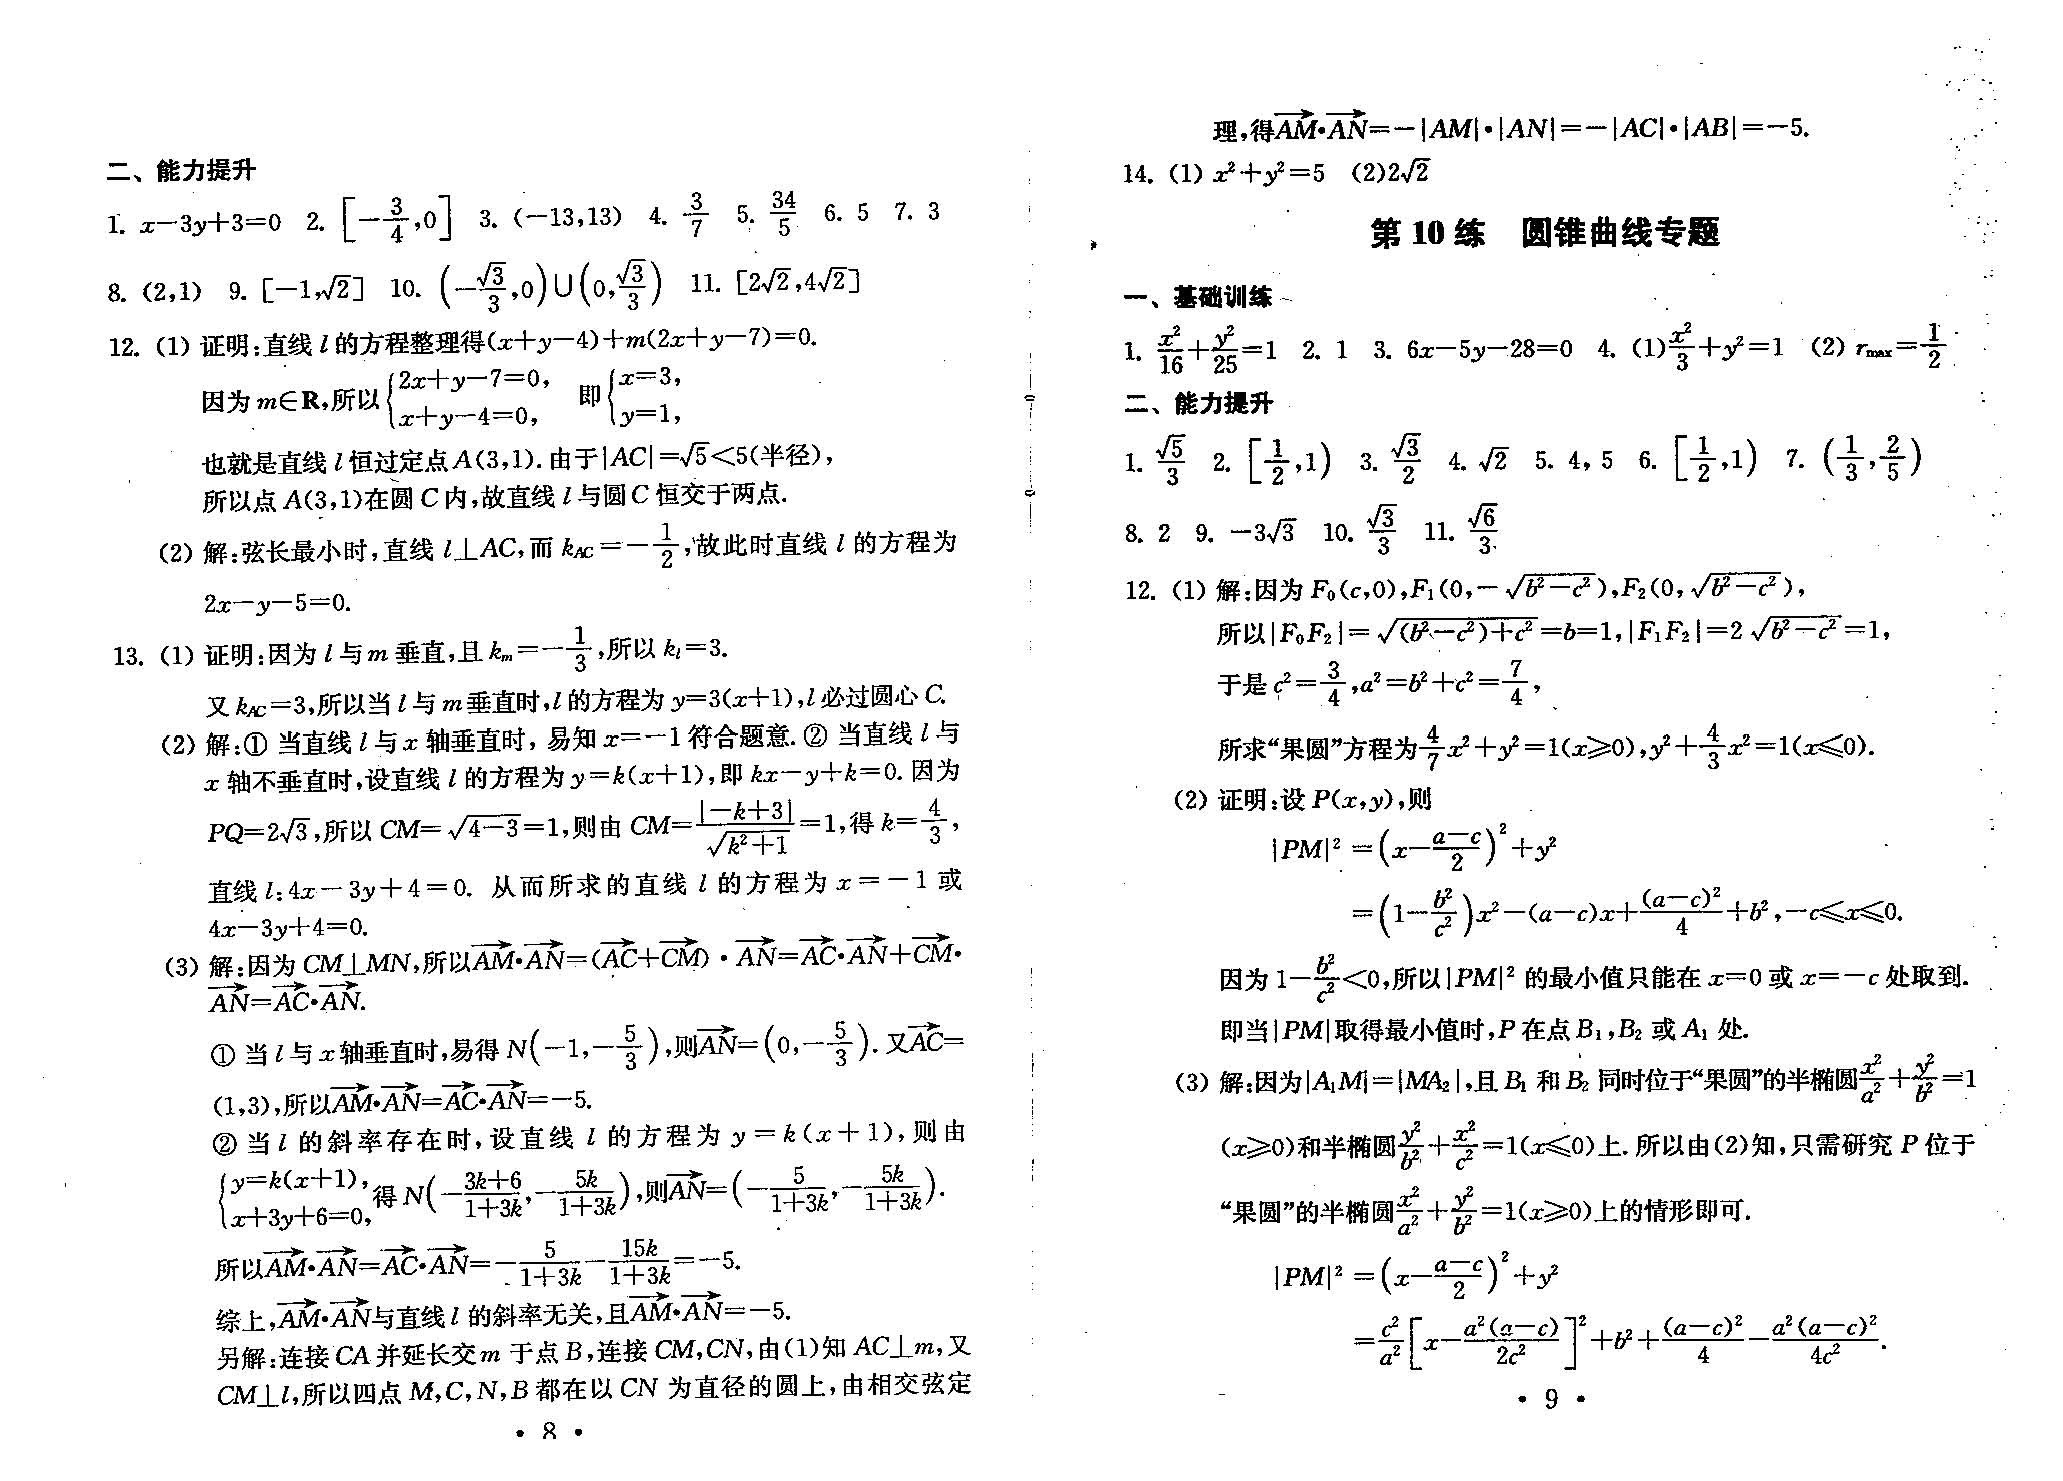 二、能力提升
1. x−3y+3=0 2. [−3/4,0] 3. (−13,13) 4. 3/7 5. 34/5 6. 5 7. 3
8. (2,1) 9. [−1,√2] 10. (−√3/3,0)∪(0,√3/3) 11. [2√2,4√2]
12. (1) 证明:直线 l 的方程整理得(x+y−4)+m(2x+y−7)=0.
因为 m∈R,所以{2x+y−7=0, x+y−4=0, 即{x=3, y=1,
也就是直线 l 恒过定点 A(3,1).由于|AC|=√5<5(半径),
所以点 A(3,1)在圆 C 内,故直线 l 与圆 C 恒交于两点.
(2) 解:弦长最小时,直线 l⊥AC,而 k_AC=−1/2,故此时直线 l 的方程为
2x−y−5=0.
13. (1) 证明:因为 l 与 m 垂直,且 k_m=−1/3,所以 k_l=3.
又 k_AC=3,所以当 l 与 m 垂直时,l 的方程为 y=3(x+1),l 必过圆心 C.
(2) 解:① 当直线 l 与 x 轴垂直时, 易知 x=−1 符合题意. ② 当直线 l 与
x 轴不垂直时,设直线 l 的方程为 y=k(x+1),即 kx−y+k=0. 因为
PQ=2√3,所以 CM=√(4−3)=1,则由 CM=|−k+3|/√(k²+1)=1,得 k=4/3,
直线 l: 4x−3y+4=0. 从而所求的直线 l 的方程为 x=−1 或
4x−3y+4=0.
(3) 解:因为 CM⊥MN,所以AM→·AN→=(AC→+CM→)·AN→=AC→·AN→+CM→·
AN→=AC→·AN→.
① 当 l 与 x 轴垂直时,易得 N(−1,−5/3),则AN→=(0,−5/3).又AC→=
(1,3),所以AM→·AN→=AC→·AN→=−5.
② 当 l 的斜率存在时, 设直线 l 的方程为 y=k(x+1), 则由
{y=k(x+1), x+3y+6=0, 得 N(−(3k+6)/(1+3k),−5k/(1+3k)),则AN→=(−5/(1+3k),−5k/(1+3k)).
所以AM→·AN→=AC→·AN→=−5/(1+3k)−15k/(1+3k)=−5.
综上,AM→·AN→与直线 l 的斜率无关,且AM→·AN→=−5.
另解:连接 CA 并延长交 m 于点 B,连接 CM,CN,由(1)知 AC⊥m,又
CM⊥l,所以四点 M,C,N,B 都在以 CN 为直径的圆上,由相交弦定
· 8 ·
理,得AM→·AN→=−|AM|·|AN|=−|AC|·|AB|=−5.
14. (1) x²+y²=5 (2)2√2
第 10 练 圆锥曲线专题
一、基础训练
1. x²/16+y²/25=1 2. 1 3. 6x−5y−28=0 4. (1)x²/3+y²=1 (2) r_max=1/2
二、能力提升
1. √5/3 2. [1/2,1) 3. √3/2 4. √2 5. 4,5 6. [1/2,1) 7. (1/3,2/5)
8. 2 9. −3√3 10. √3/3 11. √6/3
12. (1) 解:因为 F₀(c,0),F₁(0,−√(b²−c²)),F₂(0,√(b²−c²)),
所以|F₀F₂|=√((b²−c²)+c²)=b=1,|F₁F₂|=2√(b²−c²)=1,
于是 c²=3/4,a²=b²+c²=7/4,
所求“果圆”方程为4/7x²+y²=1(x⩾0),y²+4/3x²=1(x⩽0).
(2) 证明:设 P(x,y),则
|PM|²=(x−(a−c)/2)²+y²
=(1−b²/c²)x²−(a−c)x+(a−c)²/4+b²,−c⩽x⩽0.
因为 1−b²/c²<0,所以|PM|²的最小值只能在 x=0 或 x=−c 处取到.
即当|PM|取得最小值时,P 在点 B₁,B₂ 或 A₁ 处.
(3) 解:因为|A₁M|=|MA₂|,且 B₁ 和 B₂ 同时位于“果圆”的半椭圆x²/a²+y²/b²=1
(x⩾0)和半椭圆y²/b²+x²/c²=1(x⩽0)上. 所以由(2)知,只需研究 P 位于
“果圆”的半椭圆x²/a²+y²/b²=1(x⩾0)上的情形即可.
|PM|²=(x−(a−c)/2)²+y²
=c²/a²[x−a²(a−c)/2c²]²+b²+(a−c)²/4−a²(a−c)²/4c².
· 9 ·